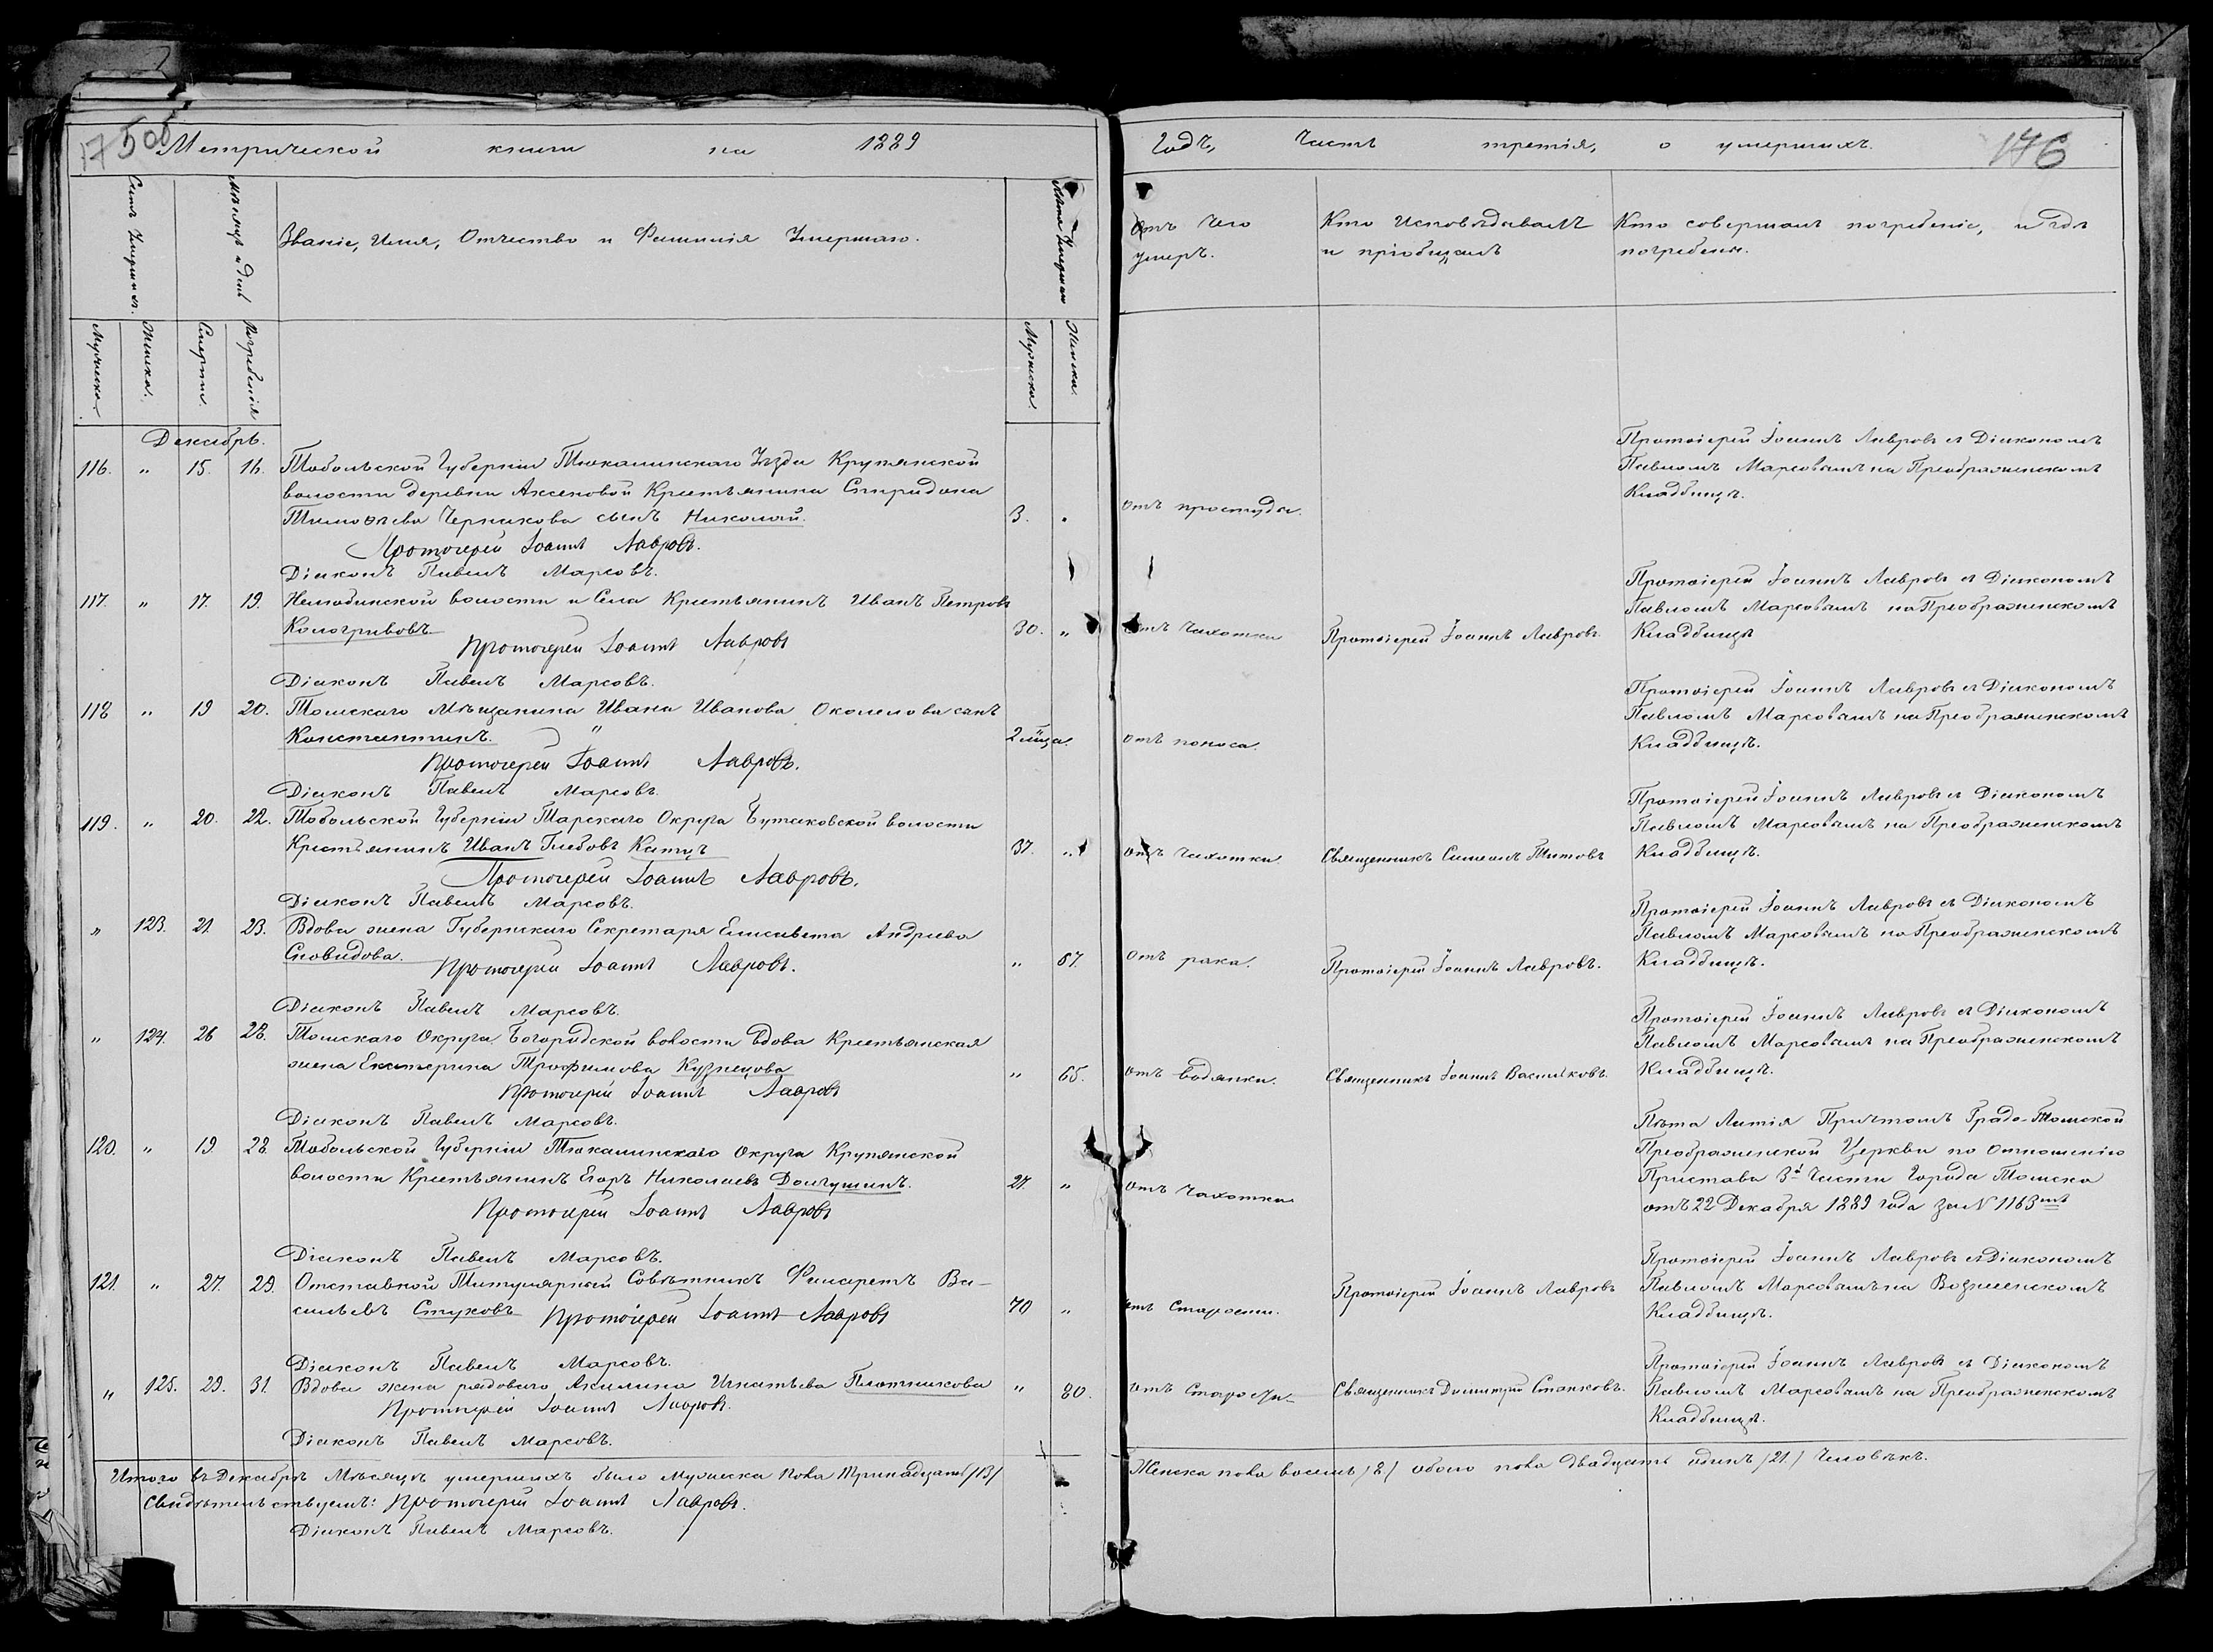 505
Метрической книги на 1889
Годъ, Часть третія, о умершихъ.
176
Счетъ Умершихъ.
Мѣсяцъ и день
Званіе, Имя, Отчество и Фамилія Умершаго.
Лѣта Умершаго
Отъ чего умеръ.
Кто исповѣдывалъ и пріобщалъ
Кто совершалъ погребеніе, и гдѣ погребены.
Мужеска.
Женска.
Смерти.
Погребенія
Мужеска.
Женска.
Декабрь.
116. " 15. 16. Тобольской Губерніи Тюкалинскаго Уѣзда Крупянской
волости деревни Аксеновой Крестьянина Спиридона
Тимоѳѣева Черникова сынъ Николай. 3.
отъ простуды.
Протоіерей Іоаннъ Лавровъ съ Діакономъ
Павломъ Марсовымъ на Преображенскомъ
Кладбищѣ.
Протоіерей Іоаннъ Лавровъ.
Діаконъ Павелъ Марсовъ.
117. " 17. 19. Нелюбинской волости и Села Крестьянинъ Иванъ Петровъ
Кологривовъ 30. "
отъ чахотки
Протоіерей Іоаннъ Лавровъ.
Протоіерей Іоаннъ Лавровъ съ Діакономъ
Павломъ Марсовымъ на Преображенскомъ
Кладбищѣ
Протоіерей Іоаннъ Лавровъ
Діаконъ Павелъ Марсовъ.
118 " 19 20. Томскаго Мѣщанина Ивана Иванова Околелова сынъ
Константинъ. " 2 мѣца.
отъ поноса.
Протоіерей Іоаннъ Лавровъ съ Діакономъ
Павломъ Марсовымъ на Преображенскомъ
Кладбищѣ.
Протоіерей Іоаннъ Лавровъ.
Діаконъ Павелъ Марсовъ.
119. " 20. 22. Тобольской Губерніи Тарскаго Округа Бутаковской волости
Крестьянинъ Иванъ Глебовъ 37. "
отъ чахотки
Священникъ Симеонъ Титовъ
Протоіерей Іоаннъ Лавровъ съ Діакономъ
Павломъ Марсовымъ на Преображенскомъ
Кладбищѣ.
Протоіерей Іоаннъ Лавровъ.
Діаконъ Павелъ Марсовъ.
" 123. 21 23. Вдова жена Губернскаго Секретаря Елисавета Андріева
Сновидова. " 67.
отъ рака.
Протоіерей Іоаннъ Лавровъ.
Протоіерей Іоаннъ Лавровъ съ Діакономъ
Павломъ Марсовымъ на Преображенскомъ
Кладбищѣ.
Протоіерей Іоаннъ Лавровъ.
Діаконъ Павелъ Марсовъ.
" 124. 26 28. Томскаго Округа Богородской волости вдова Крестьянская
жена Екатерина Трофимова Кузнецова " 65.
отъ водянки.
Священникъ Іоаннъ Васильковъ.
Протоіерей Іоаннъ Лавровъ съ Діакономъ
Павломъ Марсовымъ на Преображенскомъ
Кладбищѣ.
Протоіерей Іоаннъ Лавровъ
Діаконъ Павелъ Марсовъ.
120. " 19. 28. Тобольской Губерніи Тюкалинскаго Округа Крупянской
волости Крестьянинъ Егоръ Николаевъ Долгушинъ. 27. "
отъ чахотки
Пѣта Литія Причтомъ Градо-Томской
Преображенской Церкви по Отношенію
Пристава 3й Части Города Томска
отъ 22 Декабря 1889 года за № 1163мъ
Протоіерей Іоаннъ Лавровъ
Діаконъ Павелъ Марсовъ.
121. " 27. 29. Отставной Титулярный Совѣтникъ Филаретъ Ва-
сильевъ Стуковъ 70 "
отъ Старости.
Протоіерей Іоаннъ Лавровъ
Протоіерей Іоаннъ Лавровъ съ Діакономъ
Павломъ Марсовымъ на Вознесенскомъ
Кладбищѣ.
Протоіерей Іоаннъ Лавровъ
Діаконъ Павелъ Марсовъ.
" 125. 29. 31. Вдова жена рядоваго Акилина Игнатьева Плотникова " 80.
отъ Старости
Священникъ Димитрій Станковъ.
Протоіерей Іоаннъ Лавровъ съ Діакономъ
Павломъ Марсовымъ на Преображенскомъ
Кладбищѣ.
Протоіерей Іоаннъ Лавровъ.
Діаконъ Павелъ Марсовъ.
Итого въ Декабрѣ Мѣсяцѣ умершихъ было Мужеска пола Тринадцать /13/
Женска пола восемь /8/ обоего пола двадцать одинъ /21/ Человѣкъ.
Свидѣтельствуемъ: Протоіерей Іоаннъ Лавровъ.
Діаконъ Павелъ Марсовъ.